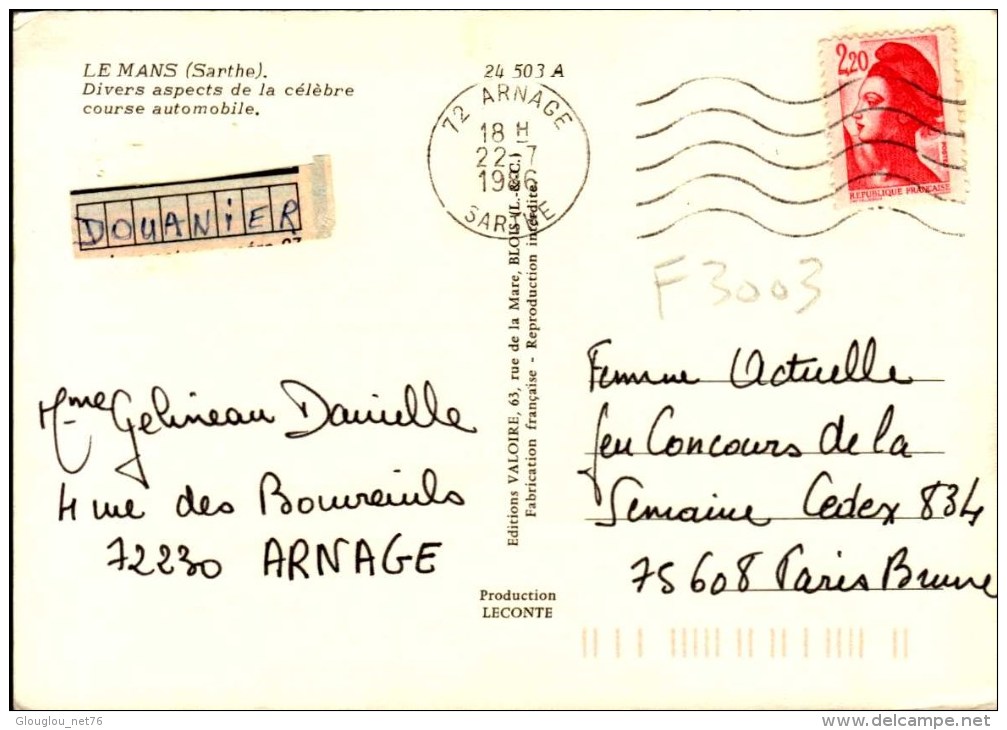 LE MANS (Sarthe).
Divers aspects de la célèbre
course automobile.
DOUANiER
24 503 A
72 ARNAGE
18 H
22-7
SARTHE
2,20
REPUBLIQUE FRANÇAISE
F3003
Editions VALOIRE, 63, rue de la Mare, BLOIS (L.-&-C.)
Fabrication française - Reproduction interdite.
Mme Gelineau Danielle
4 rue des Bouvreuils
72230 ARNAGE
Femme Actuelle
Jeu Concours de la
Semaine Cedex 834
75608 Paris Brune
Production
LECONTE
Glouglou_net76
delcampe.net